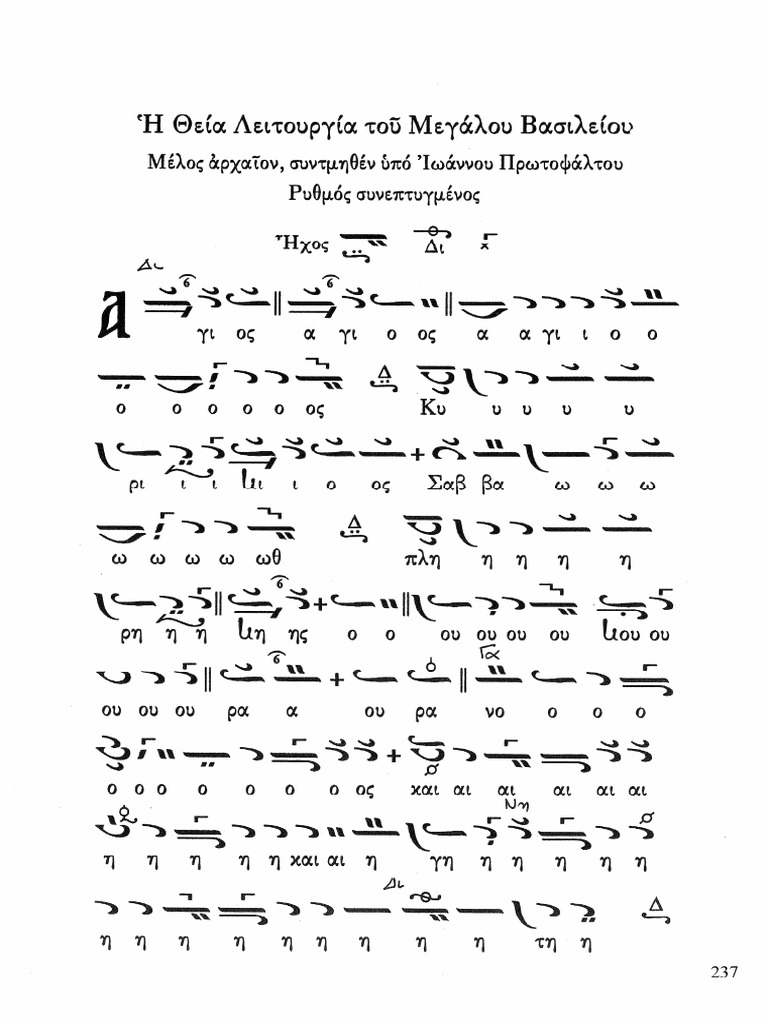 Ἡ Θεία Λειτουργία τοῦ Μεγάλου Βασιλείου
Μέλος ἀρχαῖον, συντμηθέν ὑπό Ἰωάννου Πρωτοψάλτου
Ρυθμός συνεπτυγμένος
Ἦχος Δι
Δι
Α γι ος α γι ο ος α α γι ι ο ο
Δ
ο ο ο ο ο ος Κυ υ υ υ υ
ρι ι ι ι ι ο ος Σαβ βα ω ω ω
Δ
ω ω ω ω ωθ πλη η η η η
ρη η η η ης ο ο ου ου ου ου ου ου
Γα
ου ου ου ρα α ου ρα νο ο ο ο
ο ο ο ο ο ο ο ος και αι αι αι αι αι
Νη
η η η η η και αι η γη η η η η η
Δι
Δ
η η η η η η η η η τη η
237